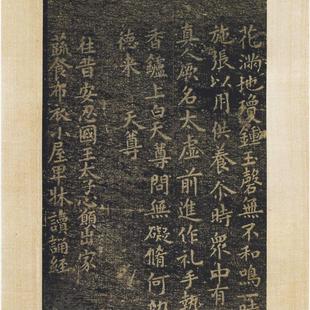 花滿地瓊鍾玉磬無不和鳴一時
施張以用供養尒時衆中有
真人厥名太虛前進作礼手執
香鑪上白天尊問無礙脩何功
德来　天尊
往昔安忍國王太子心願出家
蔬食布衣小屋卑牀讀誦經